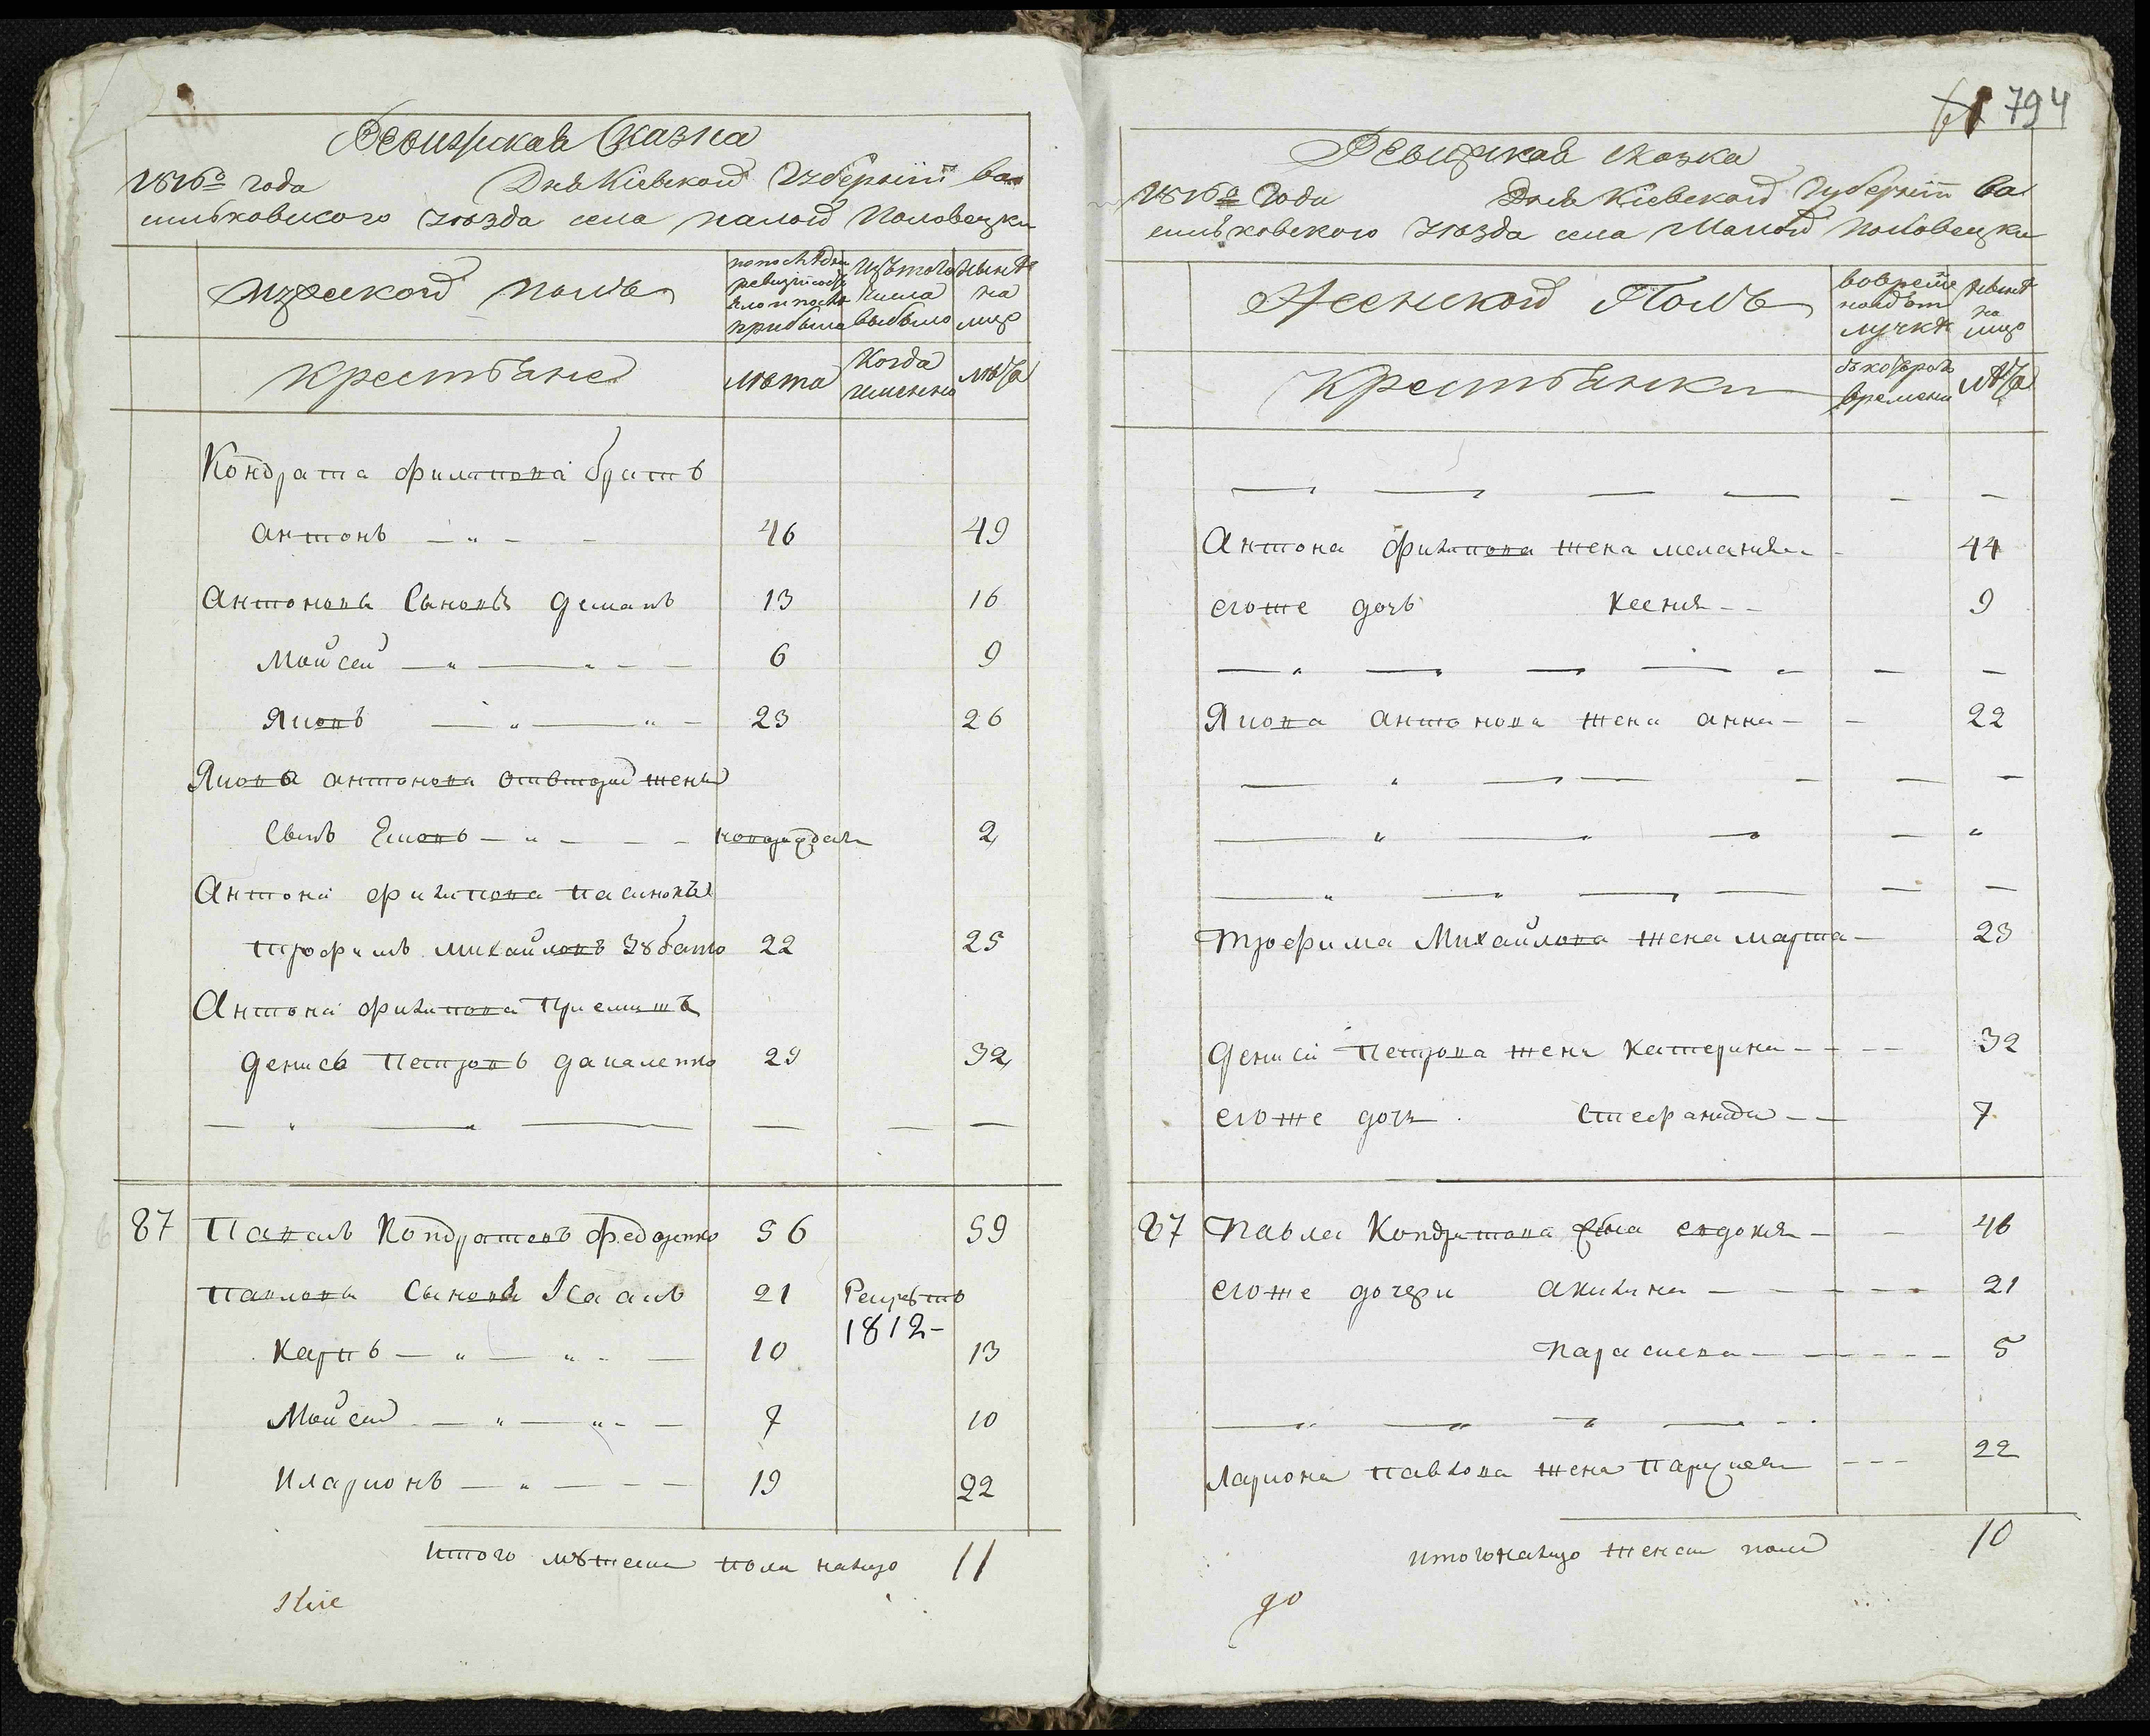 Ревизская Сказка
1816го года Дня Кіевской Губерніи Ва
сильковского уезда села малой Половецки
Мужеской полъ
по последней ревизіи состояло и после прибыло
Изъ того числа выбыло
Ныне на лицо
Крестьяне
лета
Когда именно
лета
Кондрата филипова братъ
антонъ 46 49
Антоновы Сыновья демянъ 13 16
Мойсей 6 9
Яковъ 23 26
Якова антонова отвторой жены
Сынъ новорожден 2
Антона филипова пасынокъ
трофимъ михайловъ 22 25
Антона филипова приемышъ
денисъ петровъ 29 32
87 Павелъ Кондратовъ федоренко 56 59
павловы Сыновя 21 Рекрутъ
1812
Карпъ 10 13
Мойсей 7 10
Иларионъ 19 22
Итого мужеска пола налицо 11
Кіе
794
Ревизкая сказка
1816го Года Дня Кіевской Губерніи Ва
сильковского уезда села Малой Половецки
Женской Полъ
вовремeнной отлучке
Ныне на лицо
Крестьянки
съ которого времени
лета
Антона филипова жена мелания 44
егоже дочь Ксения 9
Якова антонова жена анна 22
трофима Михайлова жена марта 23
дениса петрова жена Катерина 32
егоже дочь Стефанида 7
87 Павла Кондратова жена евдокия 46
егоже дочери акилина 21
параскева 5
Лариона павлова жена 22
итого налицо женска пола 10
до